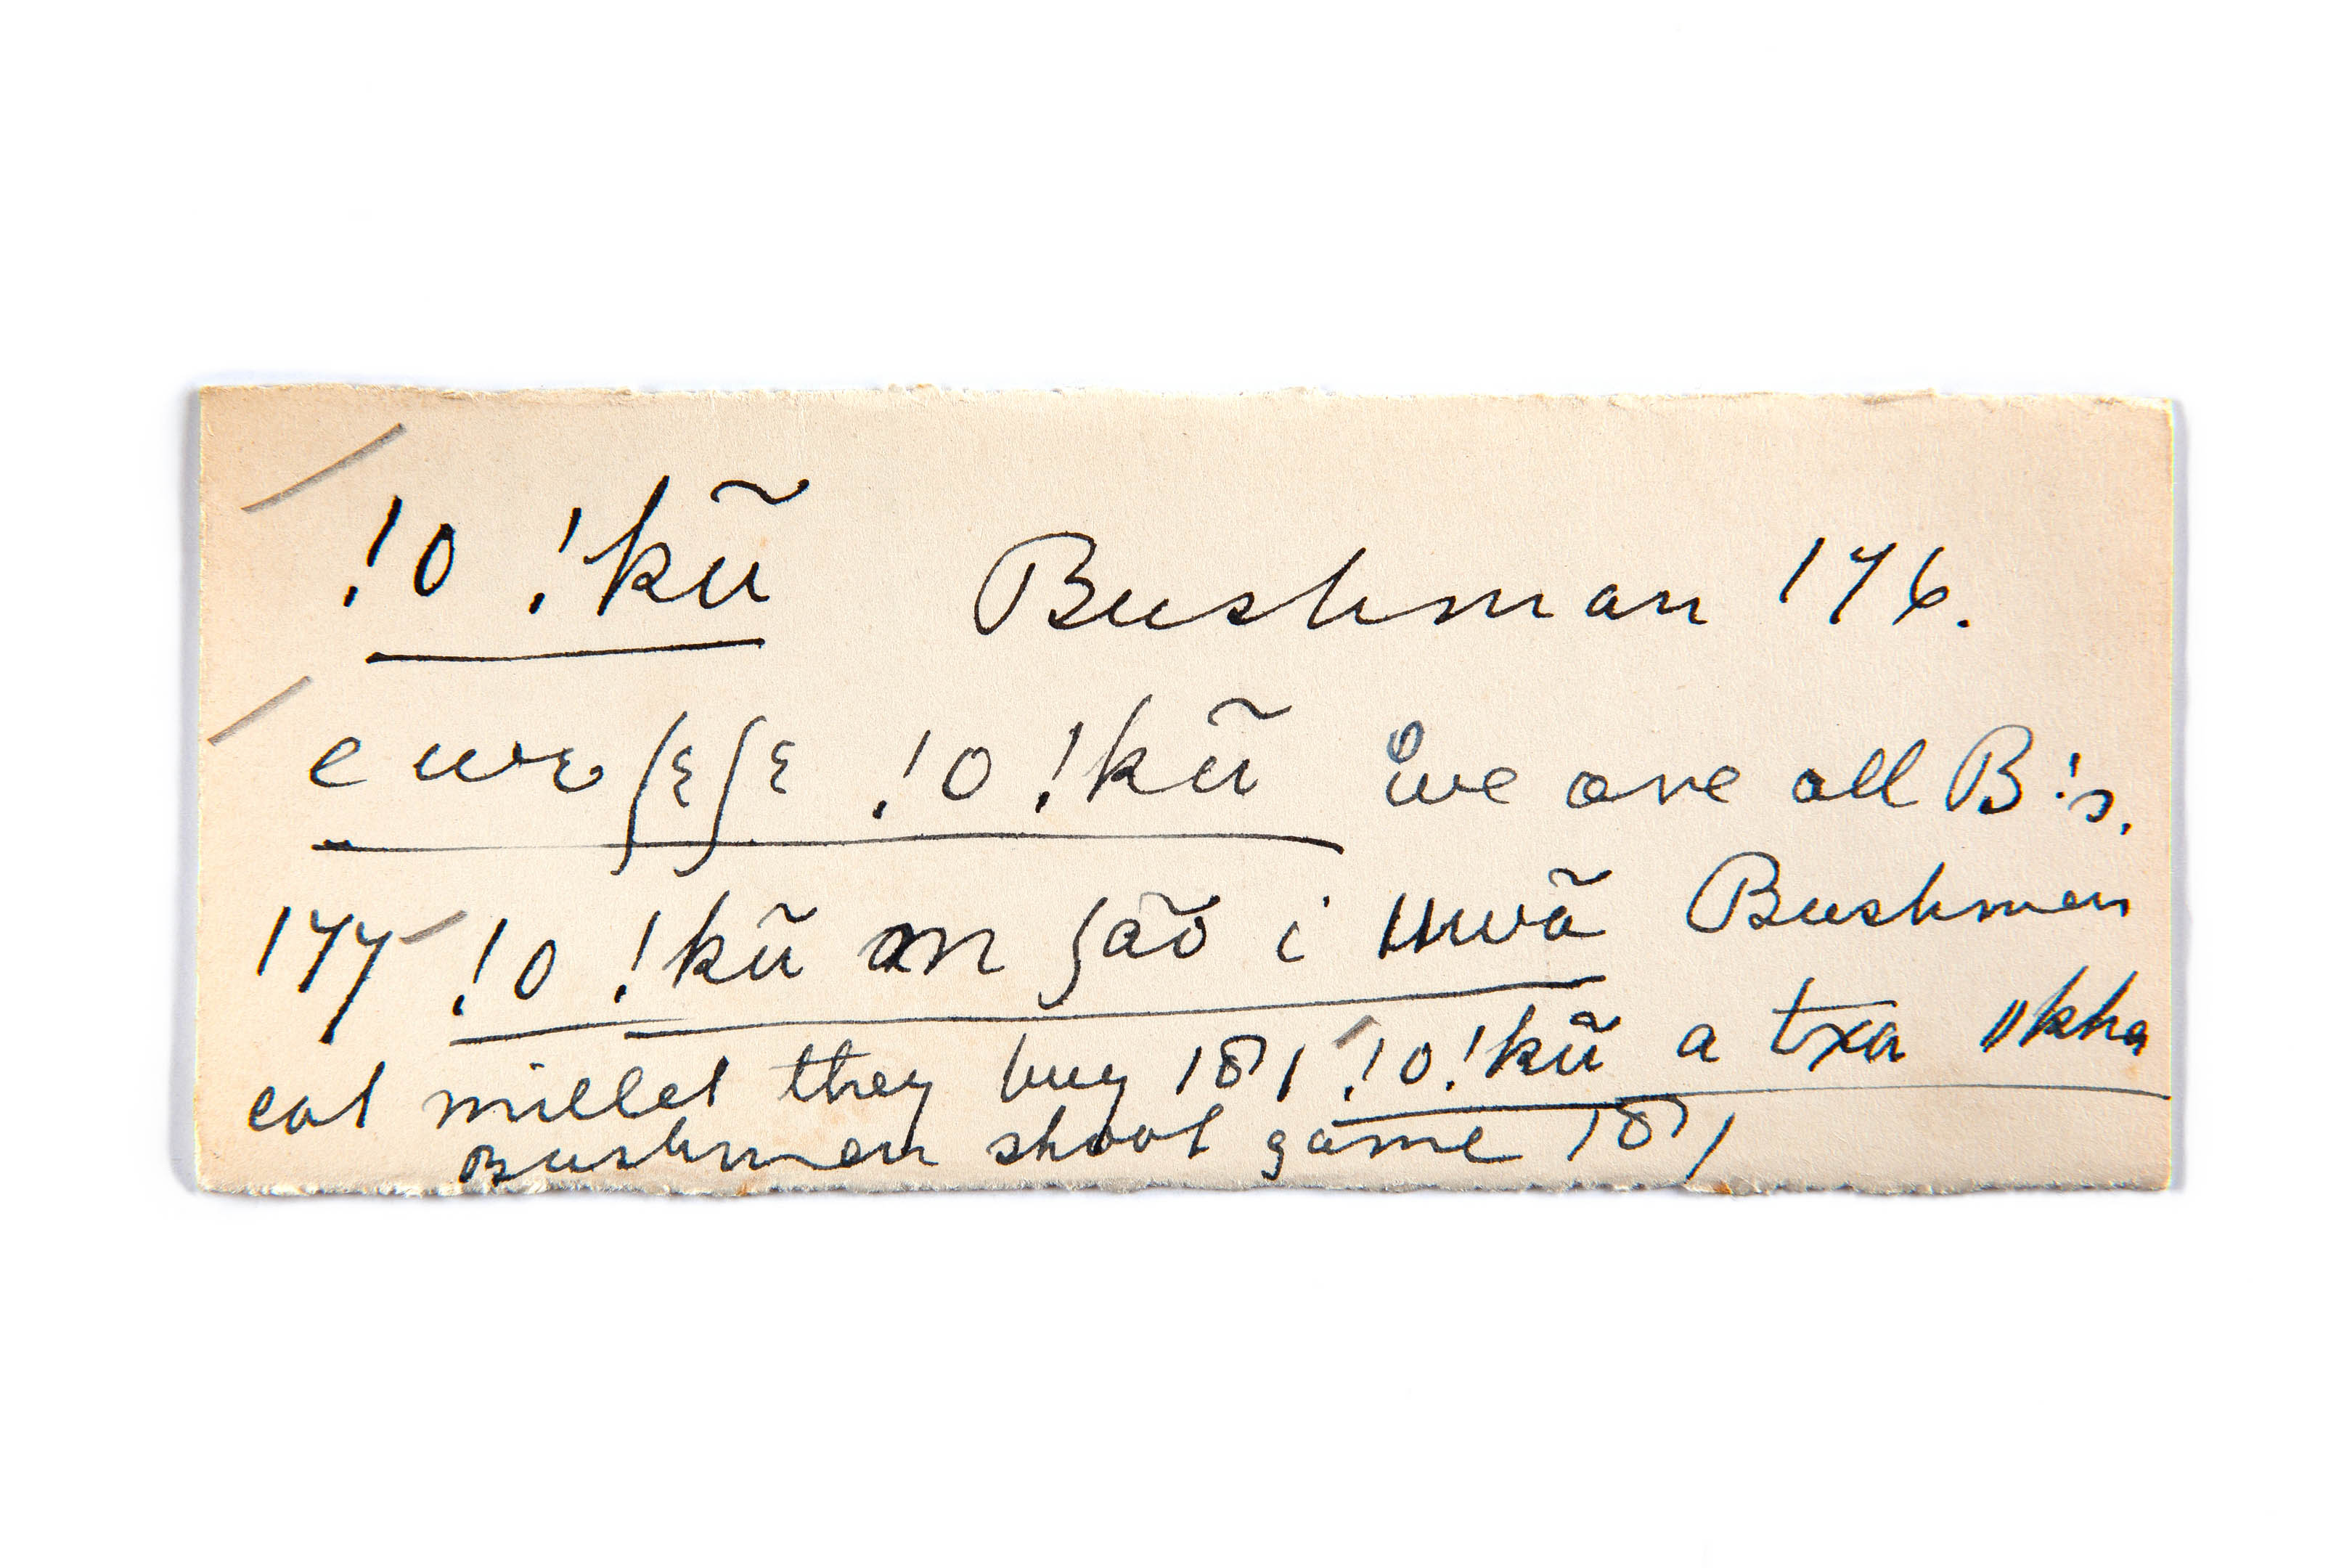 !o !kũ Bushman 176.
e uwɛ ʃɛʃɛ !o !kũ we are all B's.
177 !o !kũ m ʃãõ i ǁuwã Bushmen
eat millet they buy 181 !o !kũ a txa ǁkha
Bushmen shoot game 181